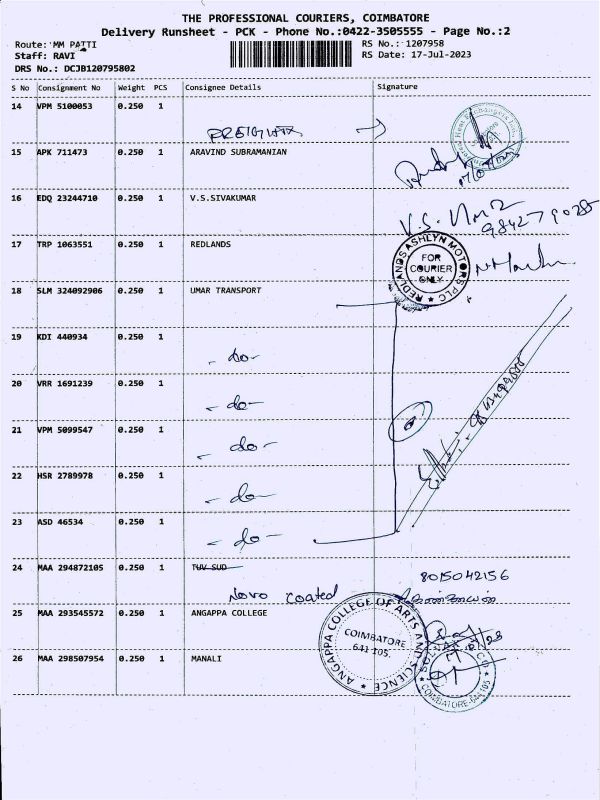 THE PROFESSIONAL COURIERS, COIMBATORE
Delivery Runsheet - PCK - Phone No.:0422-3505555 - Page No.:2
Route: MM PATTI RS No.: 1207958
Staff: RAVI RS Date: 17-Jul-2023
DRS No.: DCJB120795802
S No Consignment No Weight PCS Consignee Details Signature
14 VPM 5100053 0.250 1
15 APK 711473 0.250 1 ARAVIND SUBRAMANIAN
16 EDQ 23244710 0.250 1 V.S.SIVAKUMAR
V.S.
9842790285
17 TRP 1063551 0.250 1 REDLANDS
REDLANDS ASHLYN MOTORS PLC
FOR
COURIER
ONLY
18 SLM 324092906 0.250 1 UMAR TRANSPORT
19 KDI 440934 0.250 1
- do-
20 VRR 1691239 0.250 1
- do-
21 VPM 5099547 0.250 1
- do-
22 HSR 2789978 0.250 1
- do-
23 ASD 46534 0.250 1
- do-
24 MAA 294872105 0.250 1 TUV SUD
Novo coated
8015042156
25 MAA 293545572 0.250 1 ANGAPPA COLLEGE
ANGAPPA COLLEGE OF ARTS AND SCIENCE
COIMBATORE
641 105.
26 MAA 298507954 0.250 1 MANALI
COIMBATORE-641 105